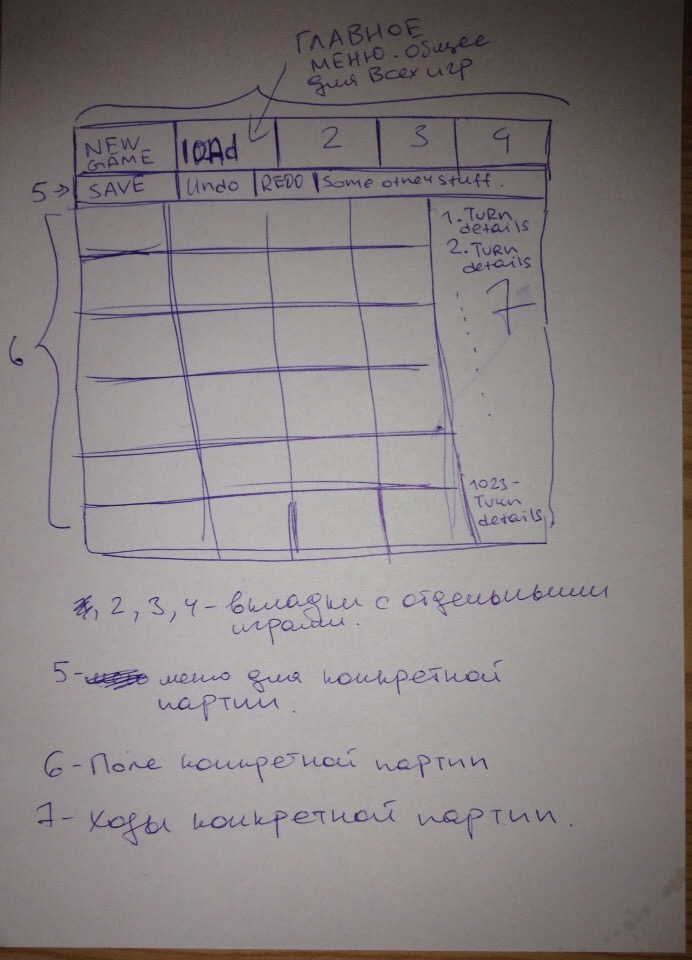 ГЛАВНОЕ
МЕНЮ. Общее
для Всех игр
NEW
GAME
lOAd
2
3
4
5→
SAVE
Undo
REDO
Some other stuff.
6
1. TURN
details
2. TURN
details
7
1023-
Turn
details
, 2, 3, 4 - вкладки с отдельными
играми.
5- меню для конкретной
партии.
6-Поле конкретной партии
7- Ходы конкретной партии.